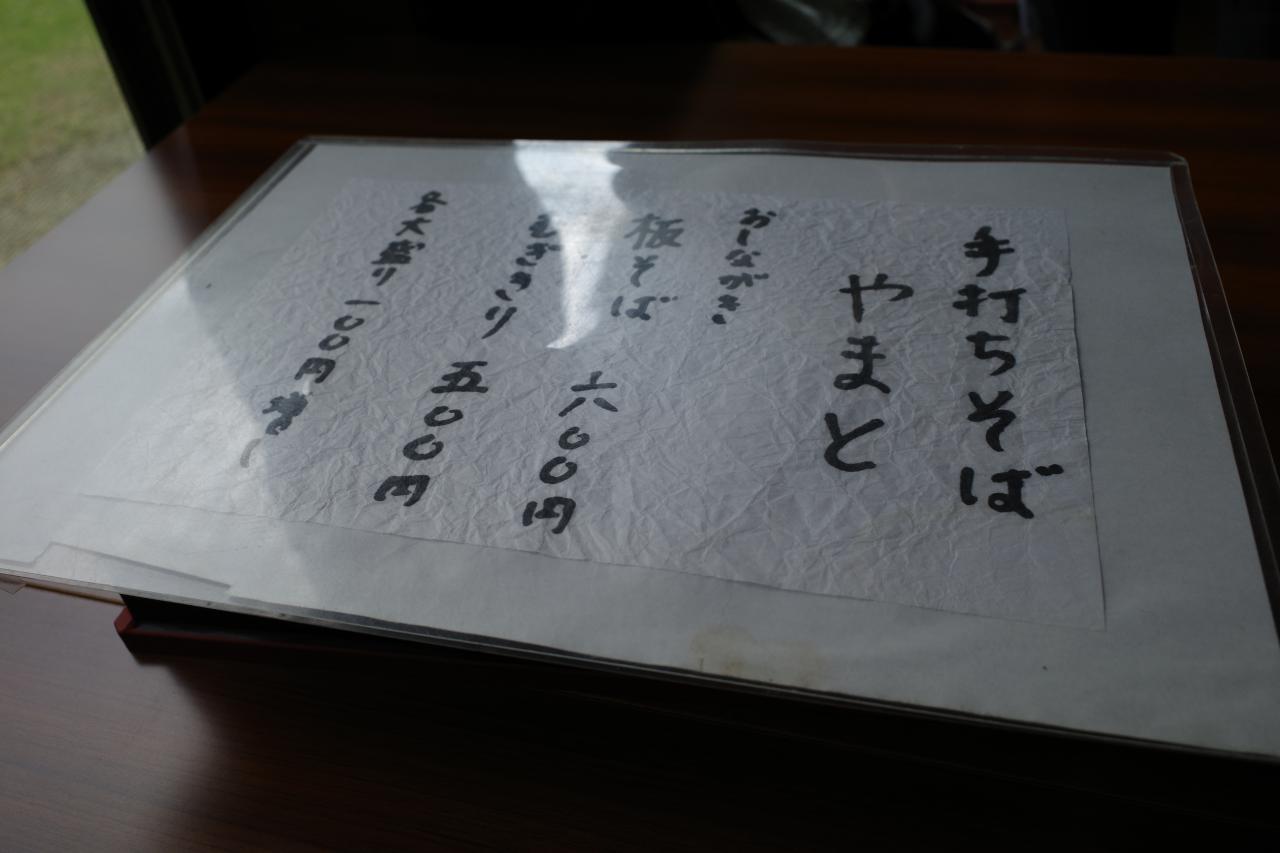 手打ちそば
やまと
おしながき
板そば 六〇〇円
むぎきり 五〇〇円
各大盛り 一〇〇円増し